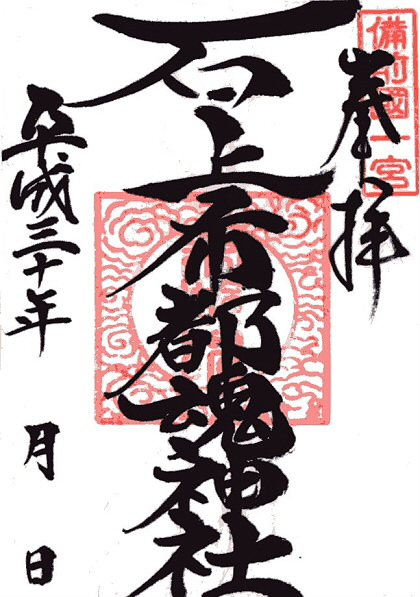 備前國一宮
奉拝
石上布都魂神社
平成三十年 月 日